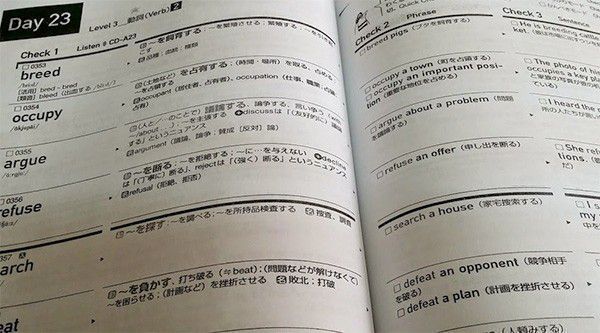 Day 23
Level 3
動詞(Verb) 2
Check 1
Listen
CD-A23
0353
breed
[活用] bred - bred
[類音] bleed(出血する
品種;血統;種類
0354
occupy
(土地など)を占有する;(時間・場所)を取る、占める
を占領する
occupant(居住者、占有者)、occupation(仕事、職業;占領)
argue
議論する、論争する、言い争う
～を主張する
discussは「(友好的に)議論
する」というニュアンス
argument(議論、論争;賛成[反対]論)
0356
refuse
～を断る、～を拒絶する;～に…を与えない
decline
は「(丁寧に)断る」、rejectは「(強く)断る」というニュアンス
refusal(拒絶、拒否)
357
arch
～を探す、～を調べる;～を所持品検査する
捜査、調査
～を負かす、打ち破る(≒beat);(問題などが解けなくて)
～を困らせる;(計画など)を挫折させる
敗北;打破
Check 2
Phrase
breed pigs(ブタを飼育する)
occupy a town(町を占領する)
occupy an important posi-
tion(重要な地位を占める)
argue about a problem(問題
を議論する)
refuse an offer(申し出を断る)
search a house(家宅捜索する)
defeat an opponent(競争相手
を破る)
defeat a plan(計画を挫折させる)
Check 3
Sentence
He is breeding cattle
The photo of hi
occupies a key p
I heard the n
She refu
lions.
だ)
I s
my
中を